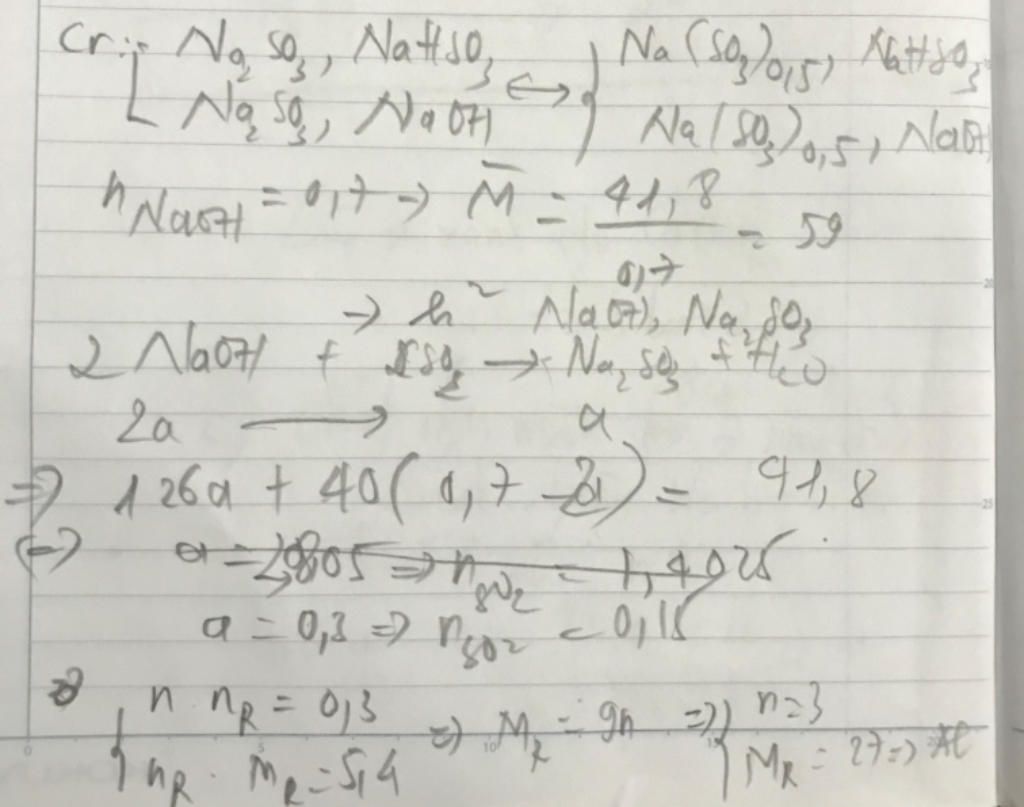 Cr: Na₂SO₃, NaHSO₃ ↔ Na(SO₃)₀,₅, NaHSO₃
Na₂SO₃, NaOH Na(SO₃)₀,₅, NaOH
n NaOH = 0,7 → M̅ = 41,8 / 0,7 = 59
→ h² NaOH, Na₂SO₃
2 NaOH + SO₂ → Na₂SO₃ + H₂O
2a → a
⇒ 126a + 40(0,7 - 2a) = 41,8
⇔ a = 2,805 ⇒ n SO₂ = 1,4025
a = 0,3 ⇒ n SO₂ = 0,15
n n_R = 0,3 ⇒ M_R = 9n ⇒ n = 3
n_R . M_R = 5,4 M_R = 27 ⇒ Al